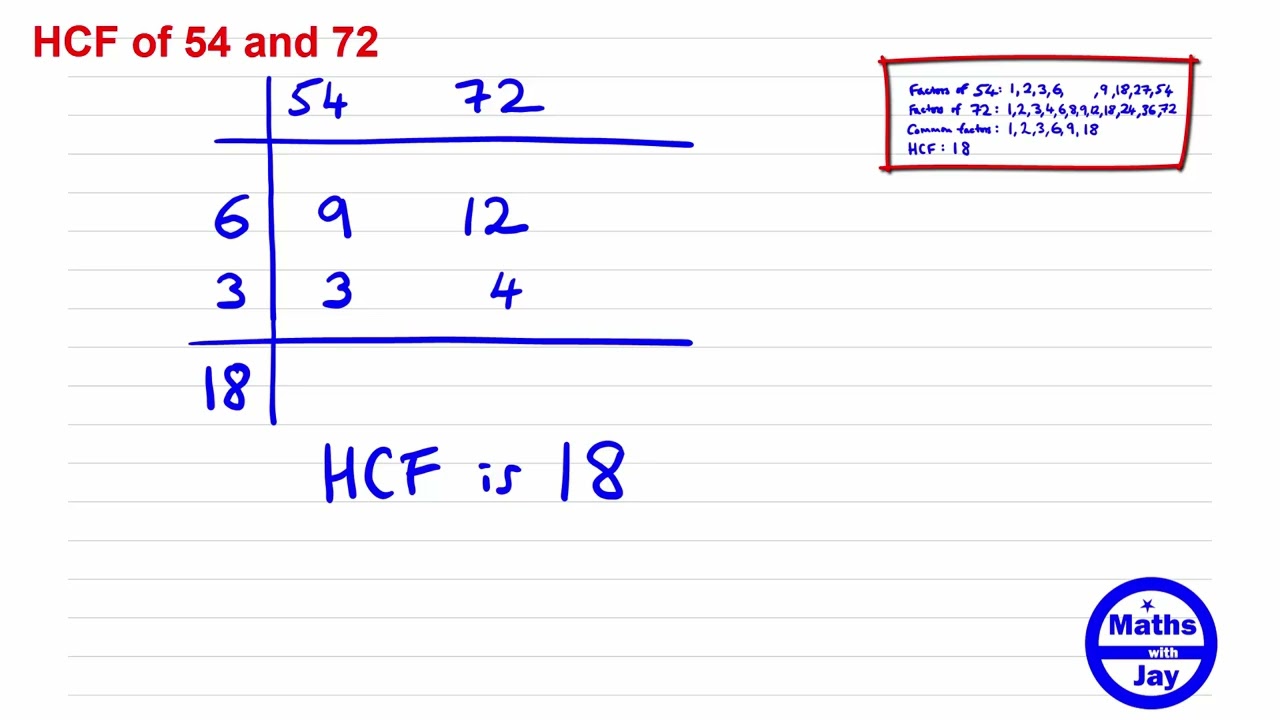 HCF of 54 and 72
54 72
6 9 12
3 3 4
18
HCF is 18
Factors of 54: 1, 2, 3, 6, , 9, 18, 27, 54
Factors of 72: 1, 2, 3, 4, 6, 8, 9, 12, 18, 24, 36, 72
Common factors: 1, 2, 3, 6, 9, 18
HCF: 18
Maths
with
Jay